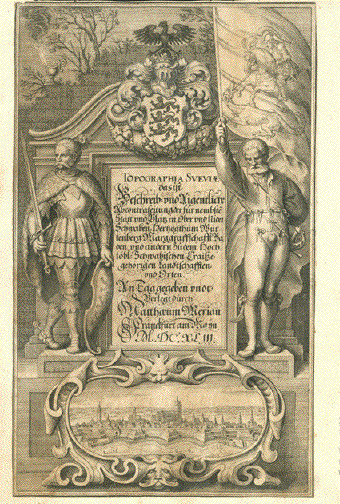 TOPOGRAPHIA SVEVIÆ
das ist
Beschreib vnd Aigentliche
Abcontrafeitung der fürnembste
Stätt vnd Plätz in Ober vnd Nider
Schwaben, Hertzogthum Wür-
tenberg Marggraffschafft Ba
den vnd andern zu dem Hoch
lobl: Schwabischen Craiße
gehörigen Landtschafften
vnd Orten.
An Tag gegeben vndt
Verlegt durch
Matthæum Merian
Franckfurt am Mayn
M.DC.XLIII.